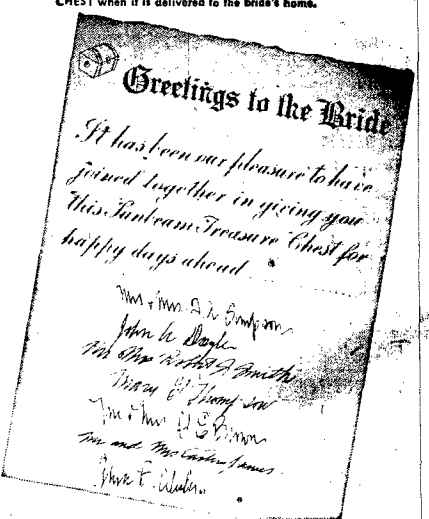 CHEST when it is delivered to the bride's home.
Greetings to the Bride
It has been our pleasure to have
joined together in giving you
this Sunbeam Treasure Chest for
happy days ahead
Mr & Mrs Simpson
John Doyle
Mr Mrs Robert J Smith
Mary Thompson
Mr & Mrs
Mr and Mrs James